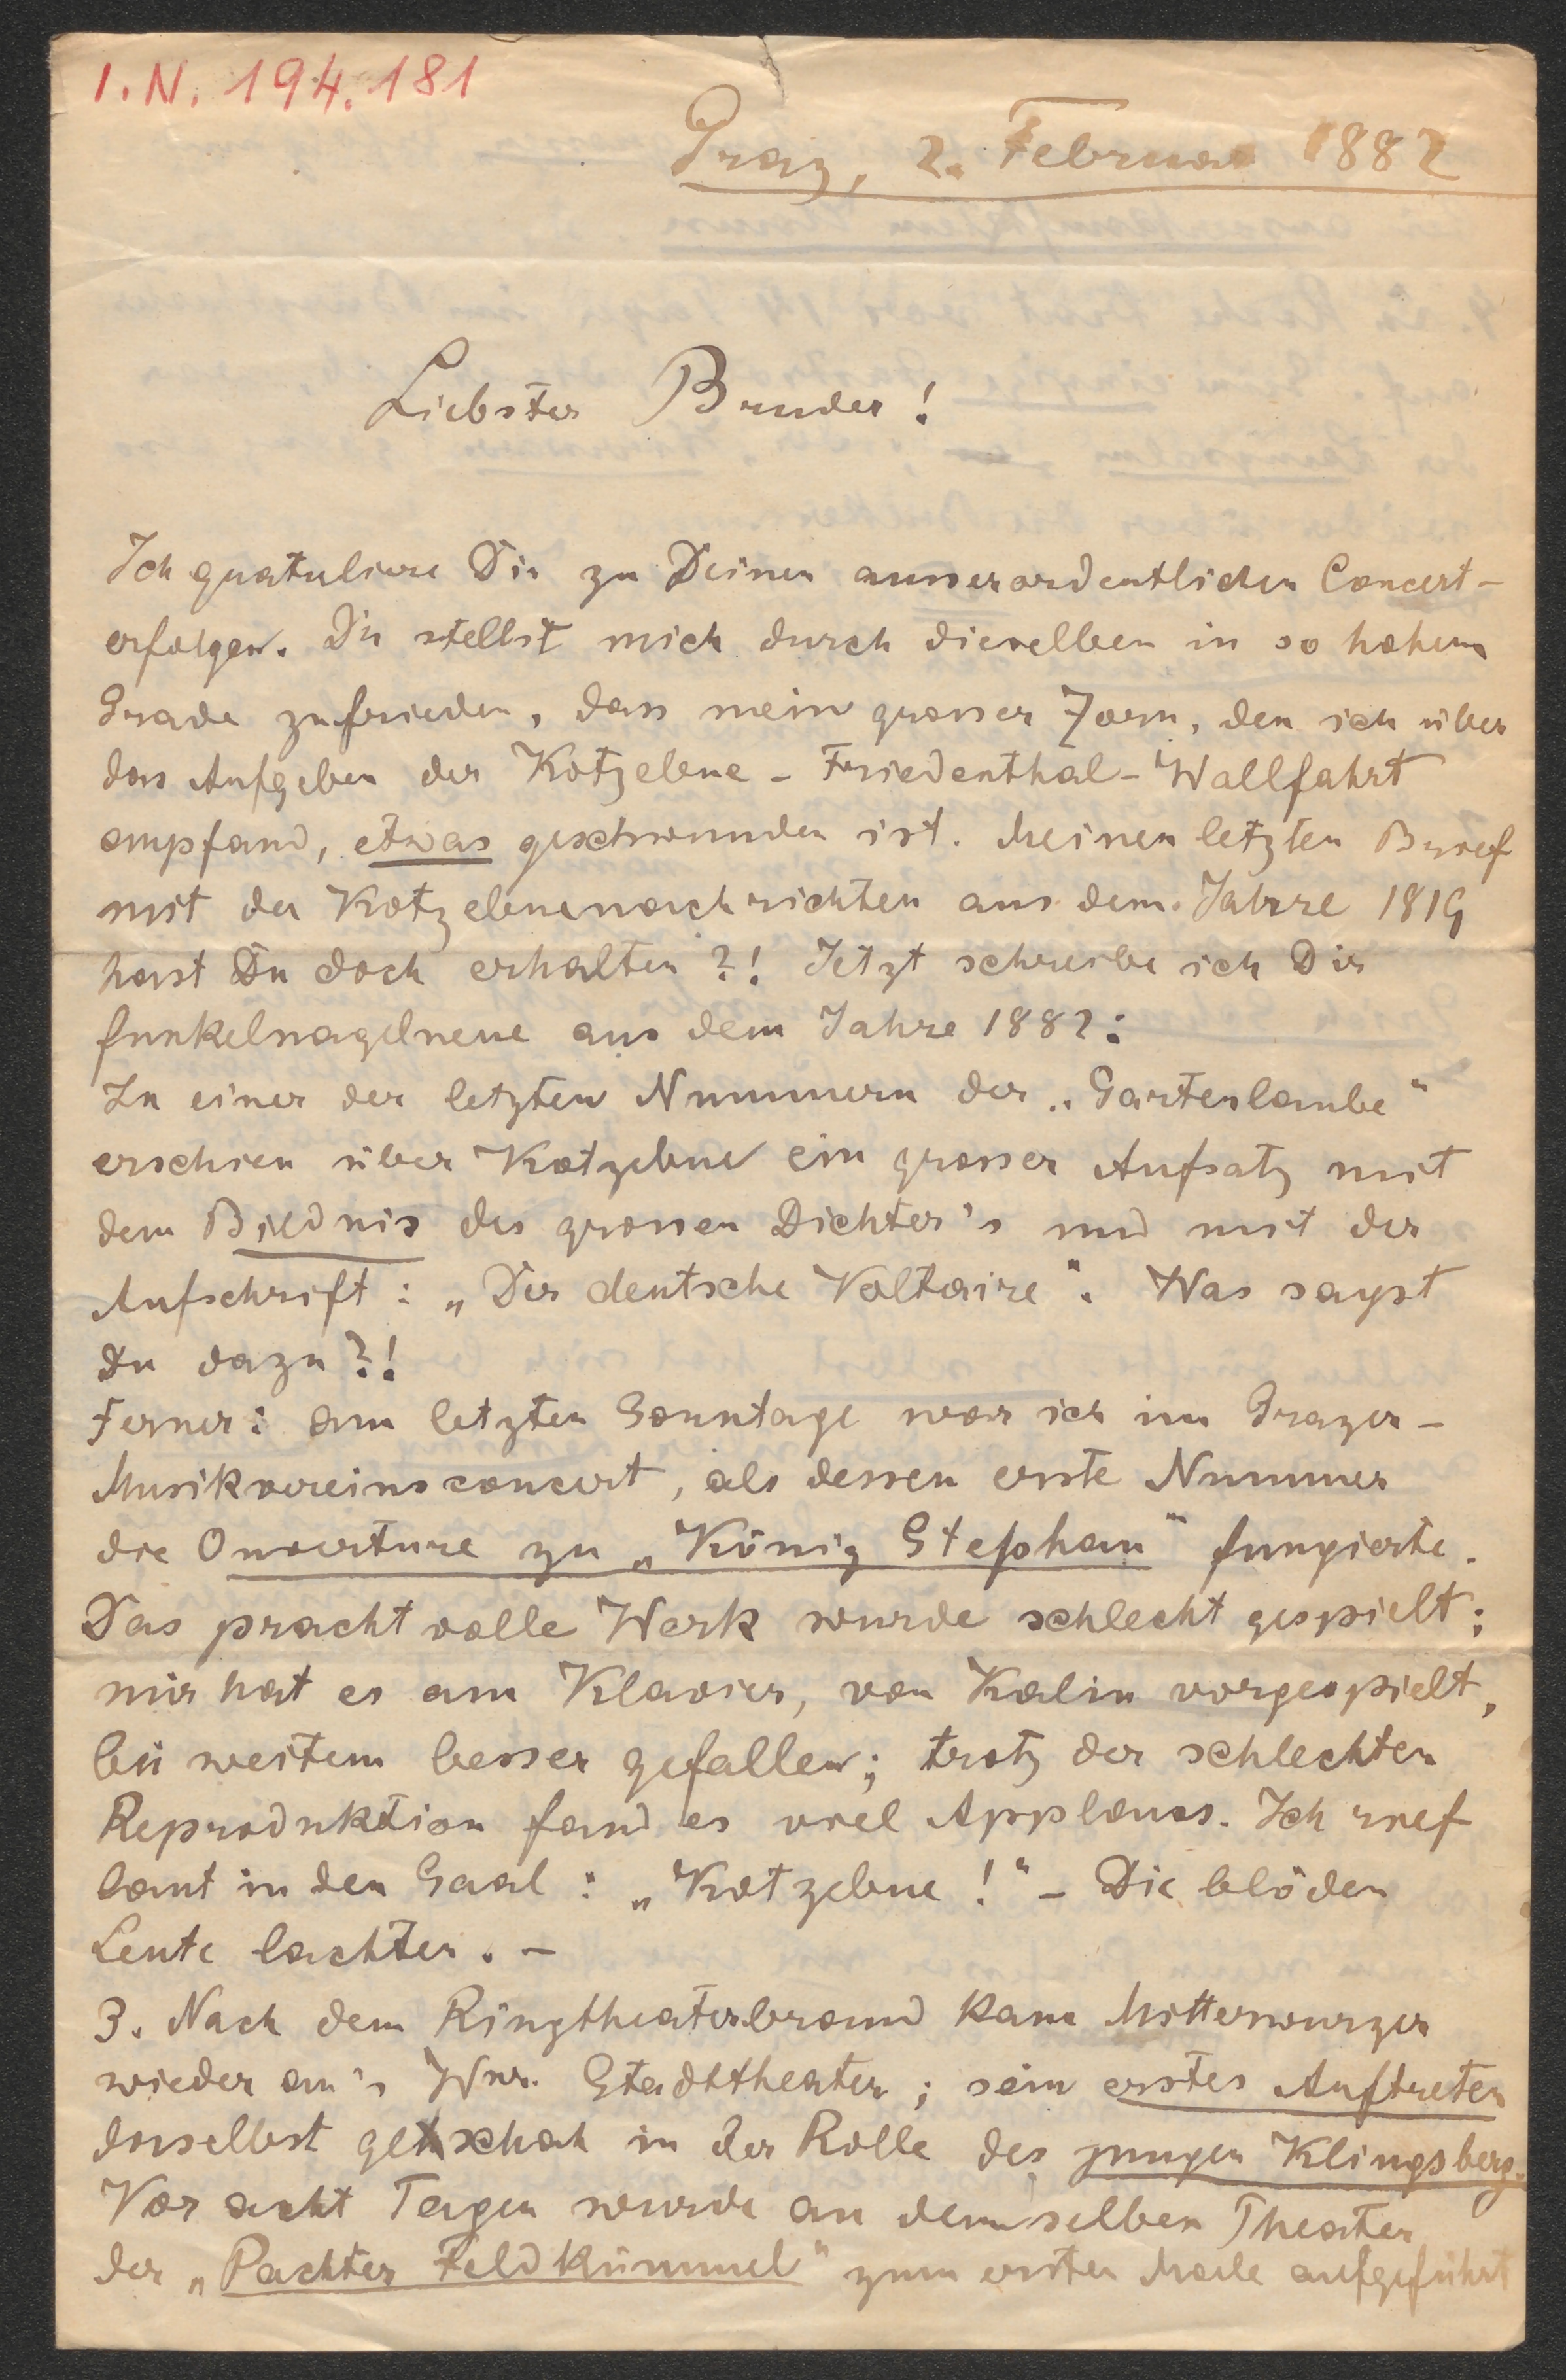 I. N. 194.181
Graz, 2. Februar 1882
Liebster Bruder!
Ich gratuliere Dir zu Deinen ausserordentlichen Concert-
erfolgen. Du stellst mich durch dieselben in so hohem
Grade zufrieden, dass mein grosser Zorn, den ich über
das Aufgeben der Kotzebue - Friedenthal - Wallfahrt
empfand, etwas geschwunden ist. Meinen letzten Brief
mit den Kotzebuenachrichten aus dem Jahre 1819
hast Du doch erhalten?! Jetzt schreibe ich Dir
funkelnagelneue aus dem Jahre 1882:
In einer der letzten Nummern der „Gartenlaube“
erschien über Kotzebue ein grosser Aufsatz mit
dem Bildnis des grossen Dichter's und mit der
Aufschrift: „Der deutsche Voltaire“. Was sagst
Du dazu?!
Ferner: am letzten Sonntage war ich im Grazer-
Musikvereinsconcert, als dessen erste Nummer
die Ouverture zu „König Stephan“ fungierte.
Das prachtvolle Werk wurde schlecht gespielt;
mir hat es am Klavier, von Kalin vorgespielt,
bei weitem besser gefallen; trotz der schlechten
Reproduktion fand es viel Applaus. Ich rief
laut in den Saal: „Kotzebue!“ - Die blöden
Leute lachten. -
3. Nach dem Ringtheaterbrand kam Mitterwurzer
wieder an's Wnr. Stadttheater; sein erstes Auftreten
daselbst geschah in der Rolle des jungen Klingsberg.
Vor acht Tagen wurde an demselben Theater
der „Pachter Feldkümmel“ zum ersten Male aufgeführt